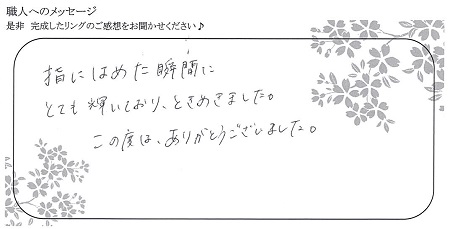 職人へのメッセージ
是非 完成したリングのご感想をお聞かせください♪
指にはめた瞬間に
とても輝いており、ときめきました。
この度は、ありがとうございました。